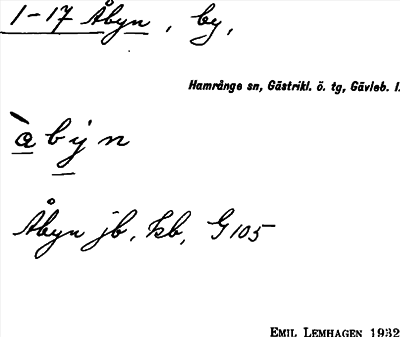 1-17 Åbyn, by,
Hamrånge sn, Gästrikl. ö. tg, Gävleb. l.
àbyn
Åbyn jb, kb, G105
EMIL LEMHAGEN 1932